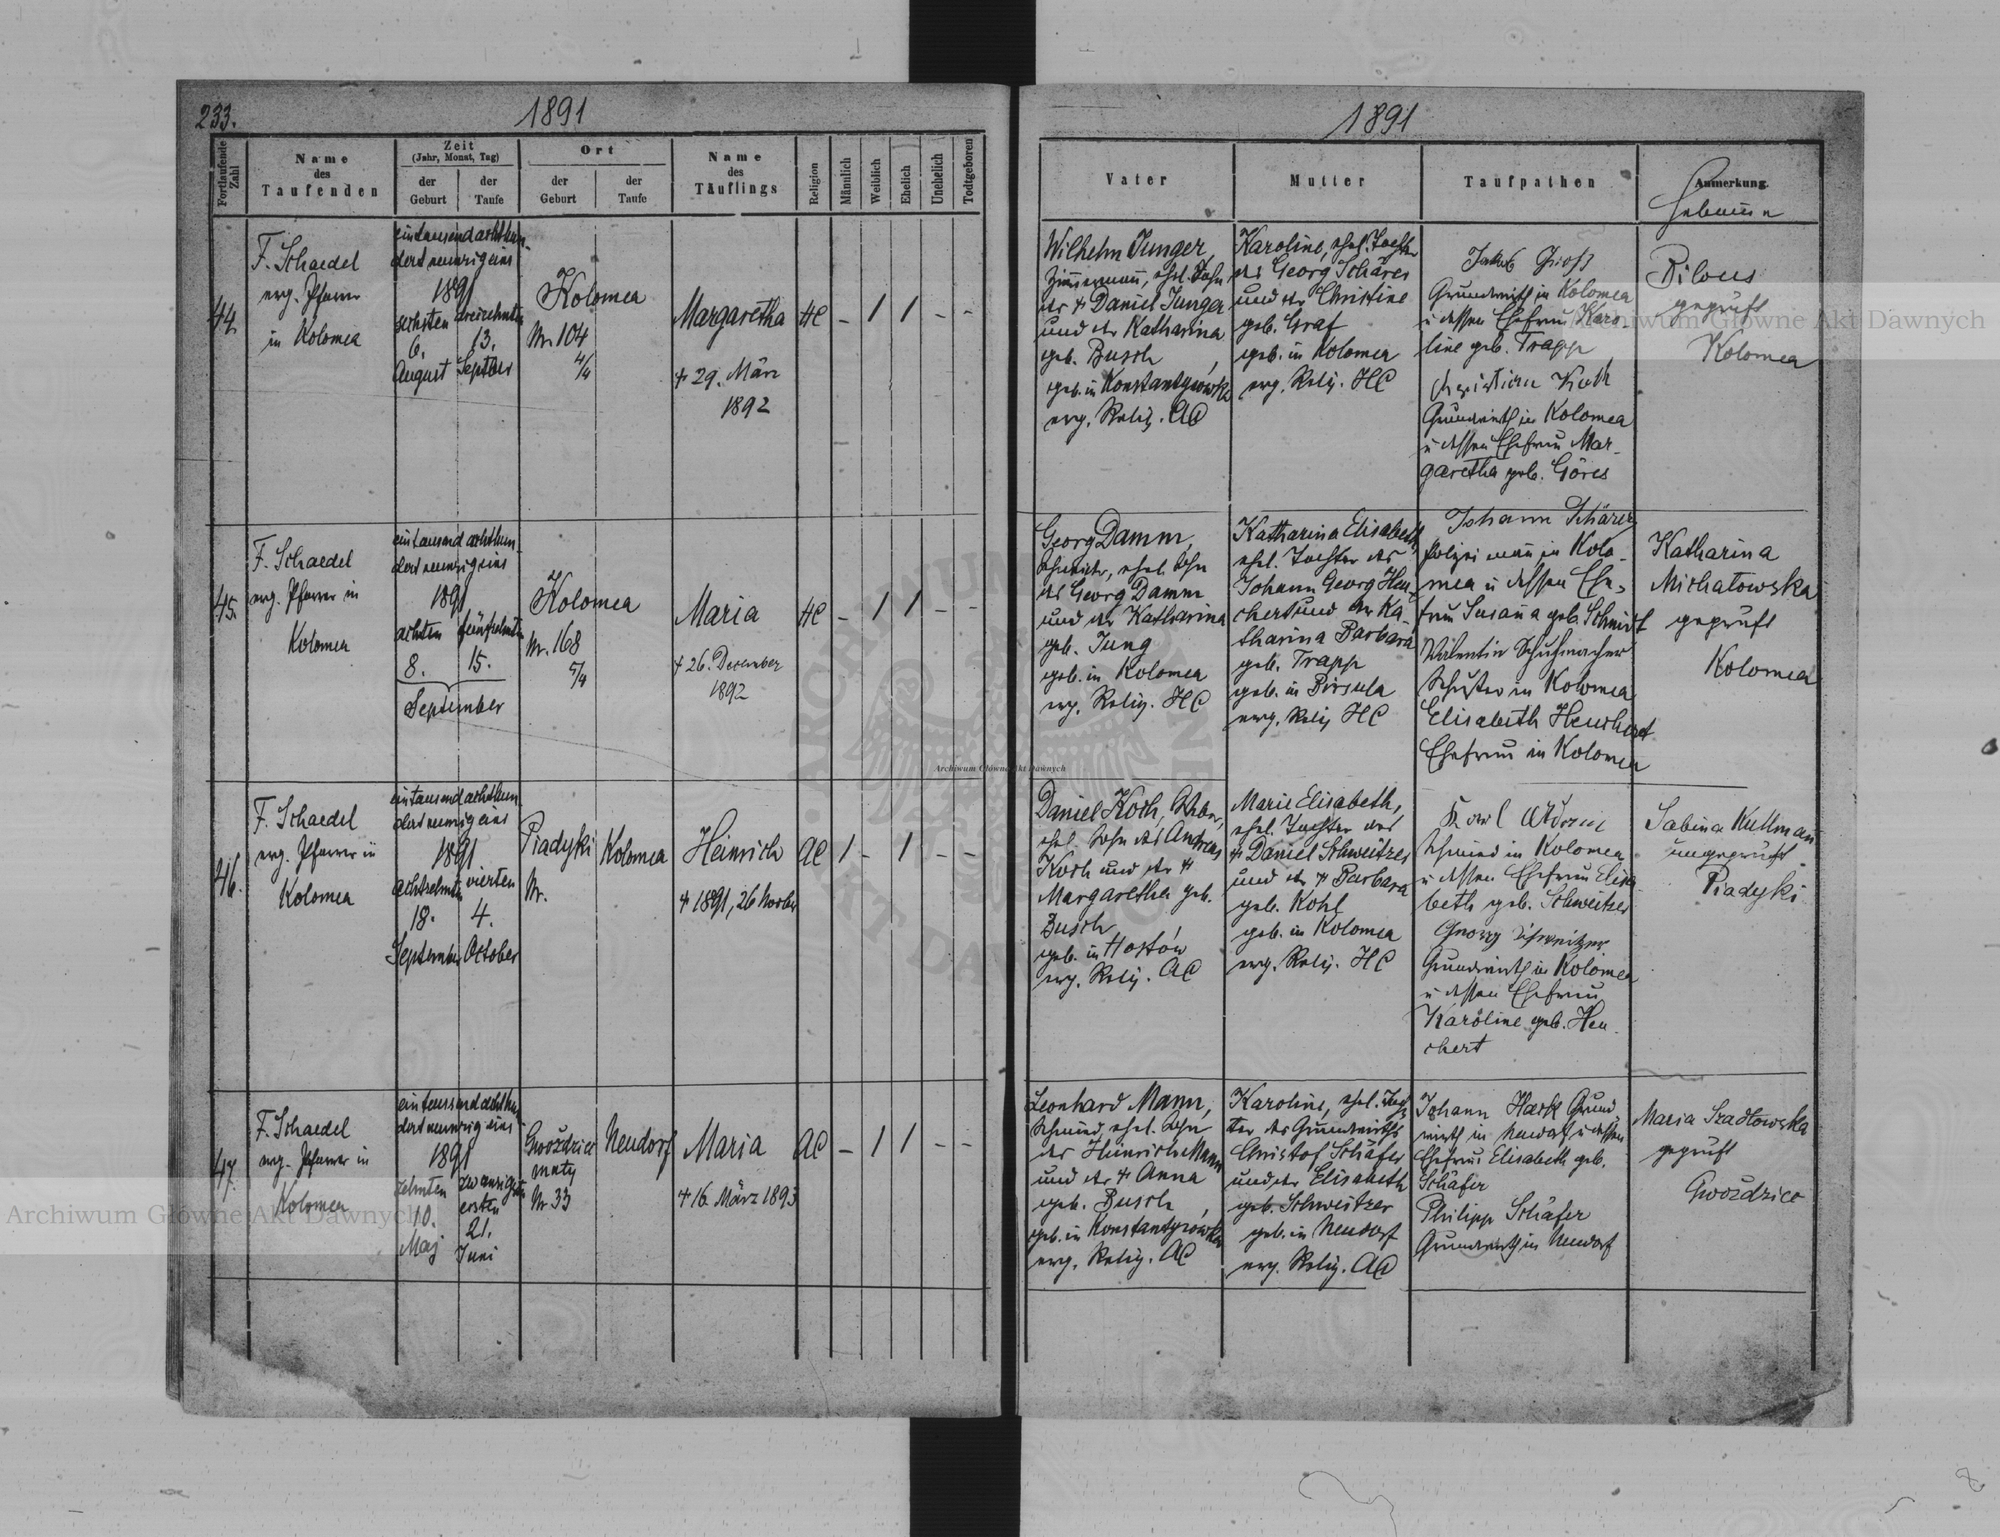 233.
1891
Fortlaufende Zahl
Name
des
Taufenden
Zeit
(Jahr, Monat, Tag)
der
Geburt
der
Taufe
Ort
der
Geburt
der
Taufe
Name
des
Täuflings
Religion
Männlich
Weiblich
Ehelich
Unehelich
Todtgeboren
1891
Vater
Mutter
Taufpathen
Anmerkung.
Hebamme
44.
F. Schaedel
evg. Pfarrer
in Kolomea
eintausendachthun-
dertneunzigeins
1891
sechsten
6.
August
dreizehnten
13.
Septber
Kolomea
Nr. 104
4/4
Margaretha
† 29. März
1892
HC
- 1 1 - -
Wilhelm Junger,
Zimmermann, ehel. Sohn
des † Daniel Junger
und der Katharina
geb. Busch,
geb. in Konstantynówka
evg. Relig. AC
Karoline, ehel. Tochter
des Georg Schärer
und der Christine
geb. Graf
geb. in Kolomea
evg. Relig. HC
Jakob Gross
Grundwirth in Kolomea
u dessen Ehefrau Karo
line geb. Trapp,
Christian Koch
Grundwirth in Kolomea
u dessen Ehefrau Mar-
garetha geb. Göres
Bilous
geprüft
Kolomea
45.
F. Schaedel
evg. Pfarrer in
Kolomea
eintausend achthun-
dertneunzigeins
1891
achten
8.
fünfzehnten
15.
September
Kolomea
Nr. 168
5/4
Maria
† 26. December
1892
HC
- 1 1 - -
Georg Damm,
ehel. Sohn
des Georg Damm
und der Katharina
geb. Jung
geb. in Kolomea
evg. Relig. HC
Katharina Elisabeth,
ehel. Tochter des
Johann Georg Heu-
chert und der Ka-
tharina Barbara
geb. Trapp
geb. in
evg. Relig HC
Johann Schärer,
Polizeimann in Kolo-
mea u dessen Ehe-
frau Susanna geb. Schmidt
Valentin Schuhmacher
Schuster in Kolomea
Elisabeth Heuchert
Ehefrau in Kolomea
Katharina
Michałowska
geprüft
Kolomea
46.
F. Schaedel
evg. Pfarrer in
Kolomea
eintausendachthun-
dertneunzigeins
1891
achtzehnten
18.
September
vierten
4.
October
Piadyki
Nr.
Kolomea
Heinrich
† 1891, 26 Novber
AC
1 - 1 - -
Daniel Koch,
ehel. Sohn des Andreas
Koch und der †
Margaretha geb.
Busch
geb. in
evg. Relig. AC
Marie Elisabeth,
ehel. Tochter des
† Daniel Schweitzer
und der † Barbara
geb. Kohl
geb. in Kolomea
evg. Relig. HC
Karl Adam
Schmied in Kolomea
u dessen Ehefrau Elisa-
beth geb. Schweitzer
Georg Schweitzer
Grundwirth in Kolomea
u dessen Ehefrau
Karoline geb. Heu-
chert
Sabina Kullmann
ungeprüft
Piadyki
47.
F. Schaedel
evg. Pfarrer in
Kolomea
eintausendachthun-
dertneunzigeins
1891
zehnten
10.
Maj
zwanzigsten
ersten
21.
Juni
Gwoździec
mały
Nr 33
Neudorf
Maria
† 16. März 1893
AC
- 1 1 - -
Leonhard Mann,
Schmied, ehel. Sohn
des Heinrich Mann
und der † Anna
geb. Busch,
geb. in Konstantynówka
evg. Relig. AC
Karoline, ehel. Toch-
ter des Grundwirths
Christof Schäfer
und der Elisabeth
geb. Schweitzer
geb. in Neudorf
evg. Relig. AC
Johann Hack Grund-
wirth in Neudorf u dessen
Ehefrau Elisabeth geb.
Schäfer
Philipp Schäfer
Grundwirth in Neudorf
Maria Szadłowska
geprüft
Gwoździec
Archiwum Główne Akt Dawnych
Archiwum Główne Akt Dawnych
Archiwum Główne Akt Dawnych